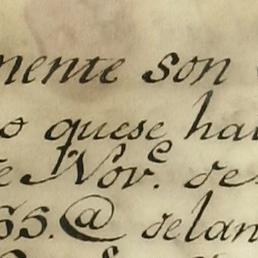 mente son
o quese hal
e Nov.e de
65.@ delan